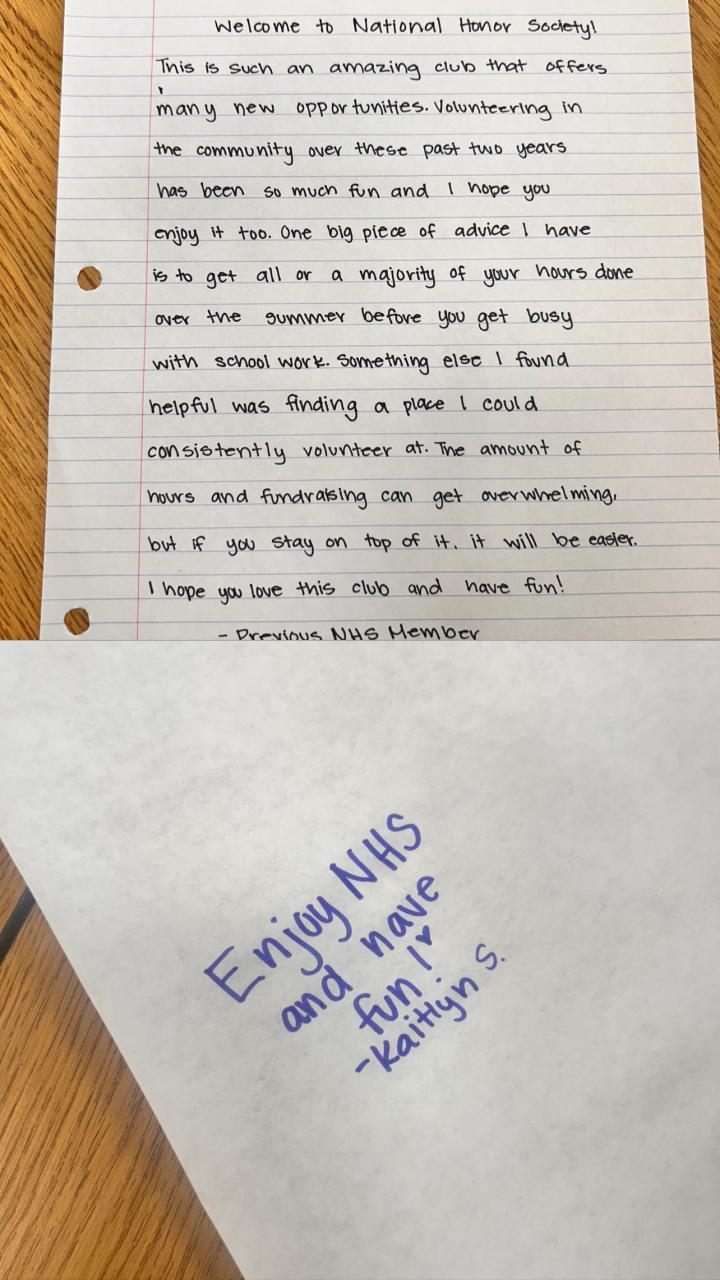 Welcome to National Honor Society!
This is such an amazing club that offers
many new opportunities. Volunteering in
the community over these past two years
has been so much fun and I hope you
enjoy it too. One big piece of advice I have
is to get all or a majority of your hours done
over the summer before you get busy
with school work. Something else I found
helpful was finding a place I could
consistently volunteer at. The amount of
hours and fundraising can get overwhelming,
but if you stay on top of it, it will be easier.
I hope you love this club and have fun!
- Previous NHS Member
Enjoy NHS
and have
fun!♥
-Kaitlyn S.